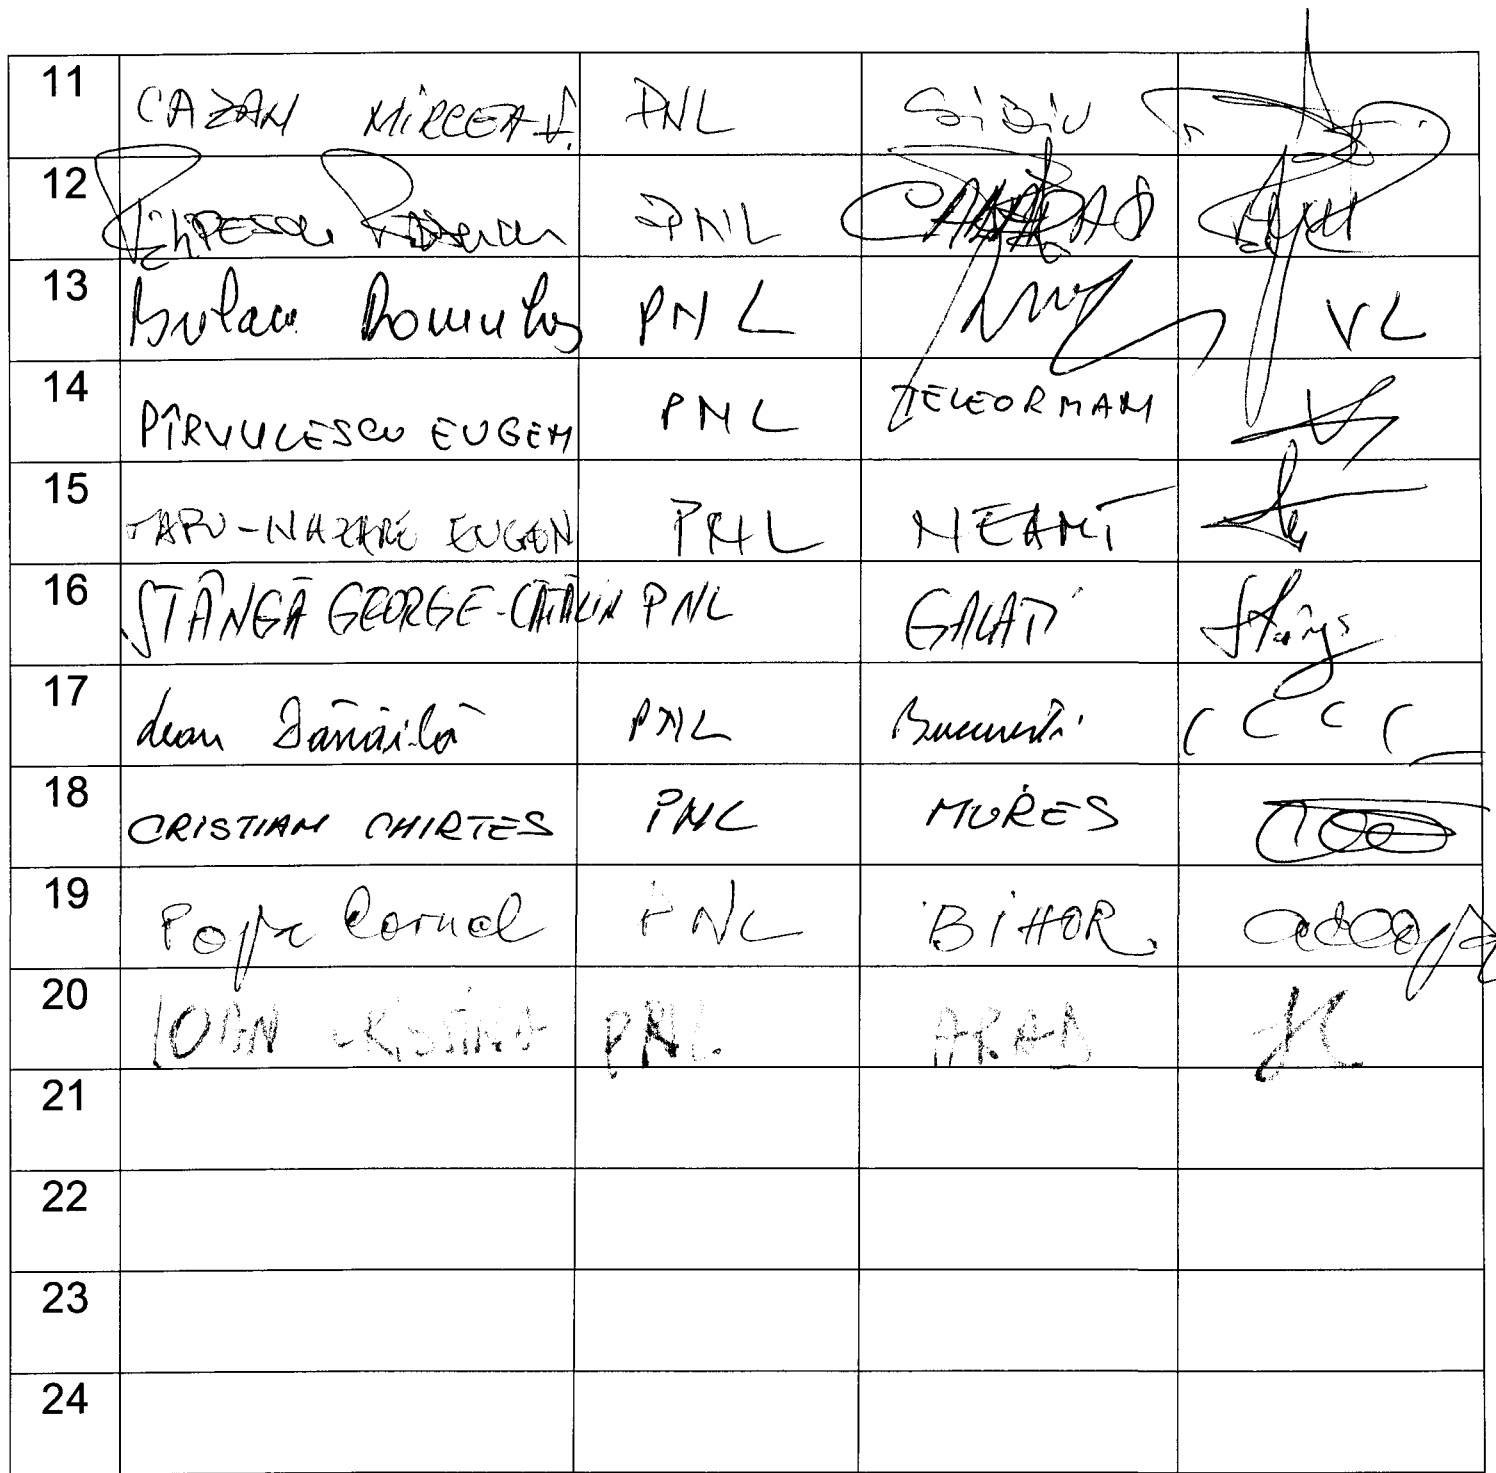 11 CAZAN MIRCEA-V. PNL SIBIU
12 PNL
13 Bulacu Romulus PNL VL
14 PÎRVULESCU EUGEN PNL TELEORMAN
15 ȚAPU-NAZARE EUGEN PNL NEAMȚ
16 STÂNGĂ GEORGE-CĂTĂLIN PNL GALAȚI
17 Leon Dănăilă PNL București
18 CRISTIAN CHIRTEȘ PNL MUREȘ
19 Popa Cornel PNL BIHOR
20 IOAN CRISTINA PNL ARAD
21
22
23
24